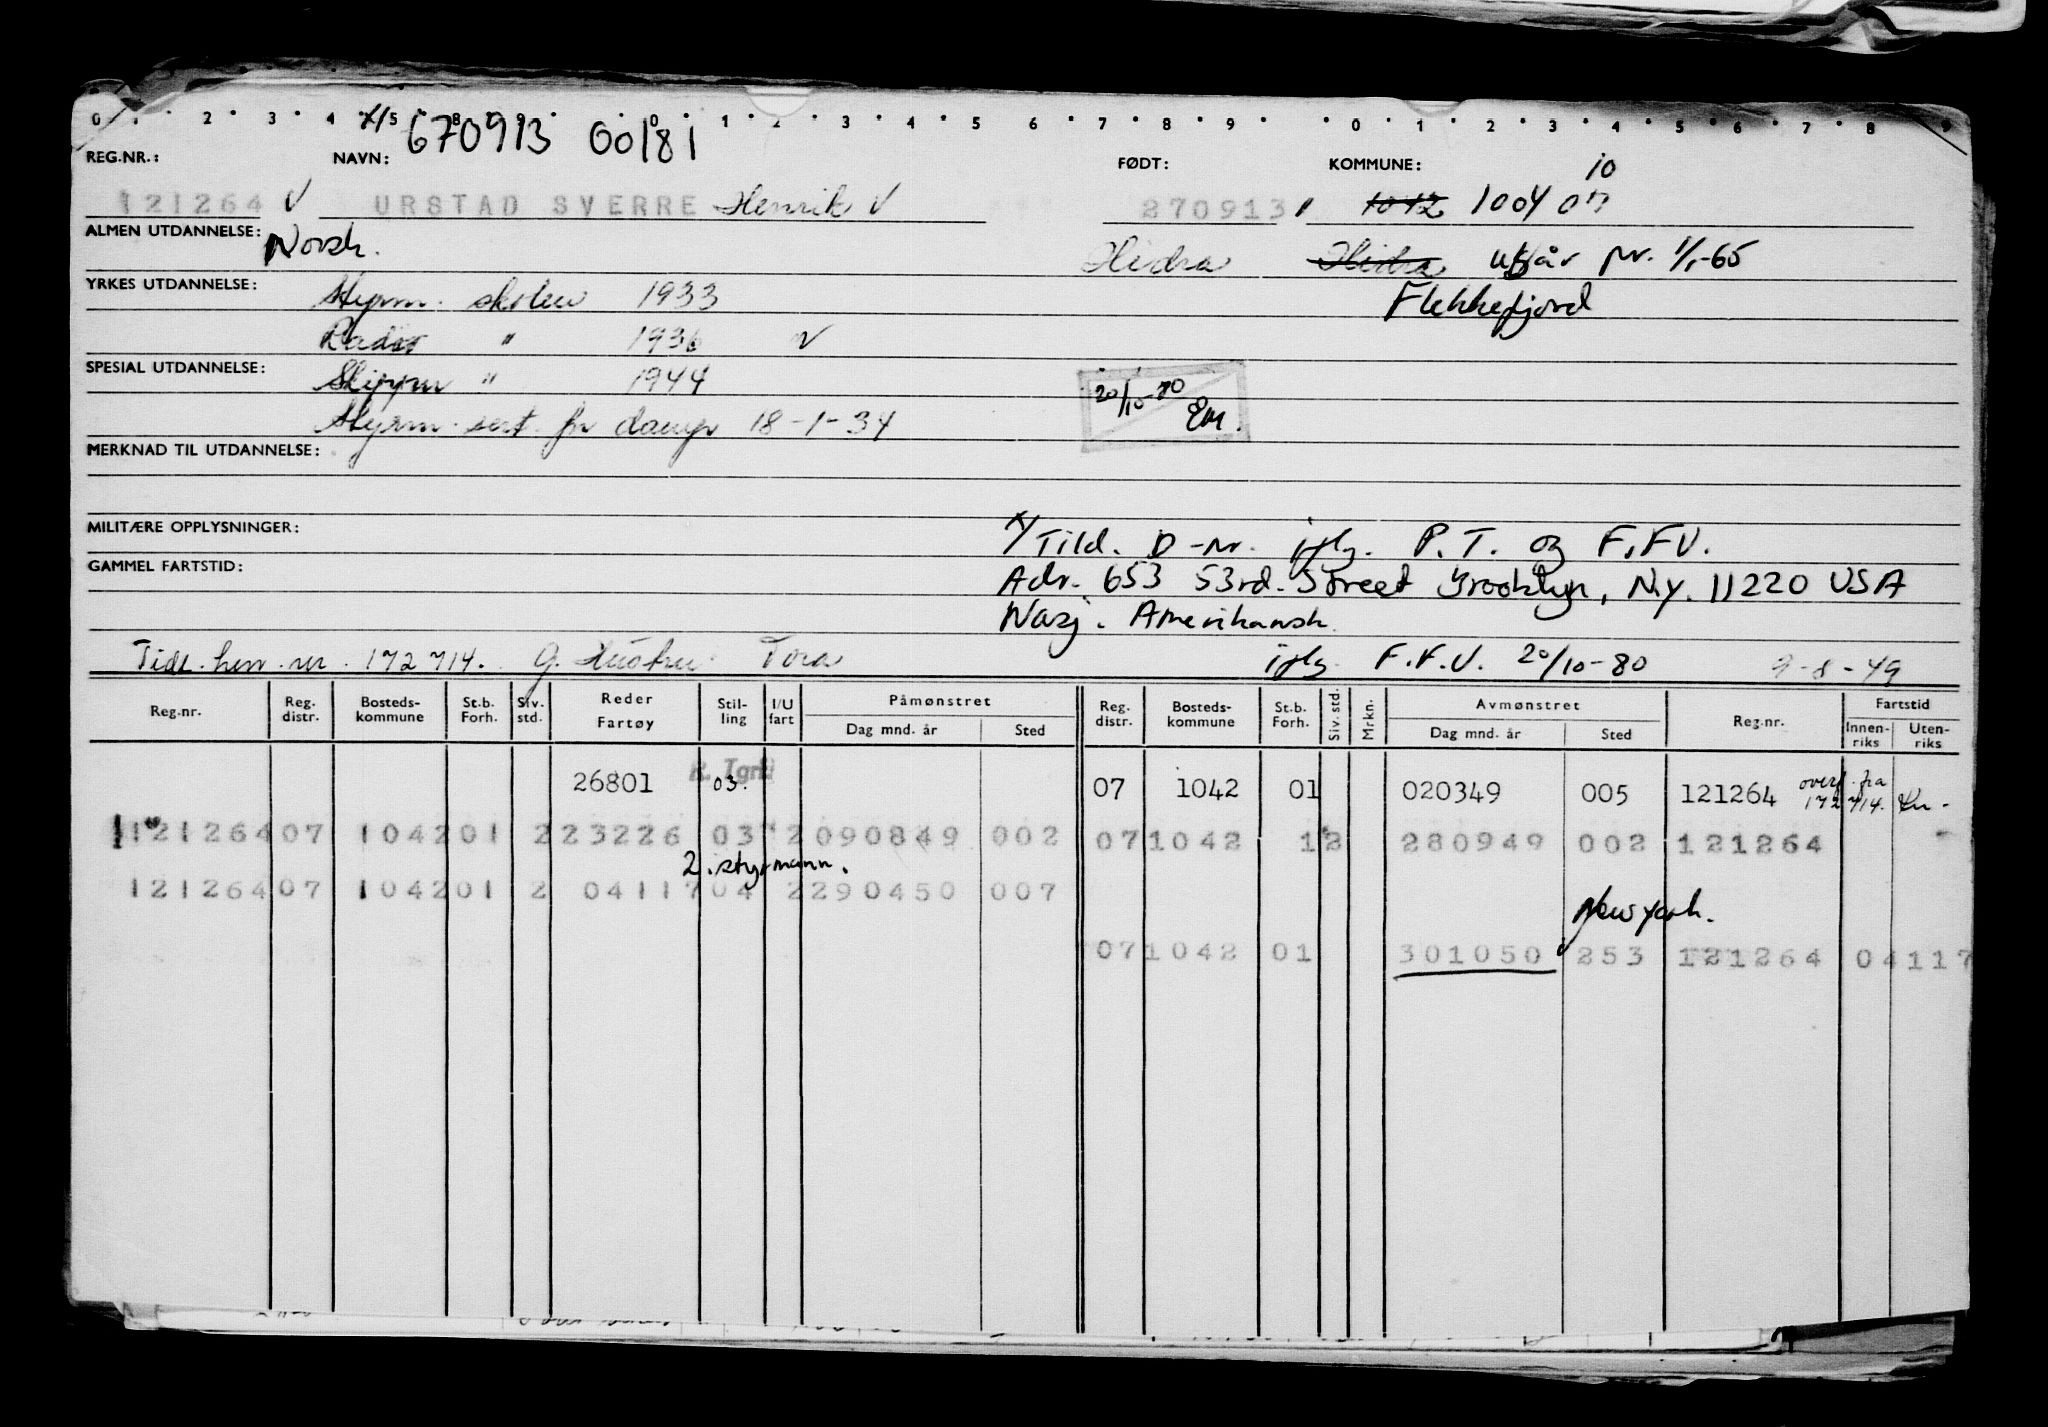 0 1 2 3 4 5 8 9 0 1 2 3 4 5 6 7 8 9 0 1 2 3 4 5 6 7 8 9
x/ 670913 00181
REG.NR.: NAVN: FØDT: KOMMUNE: 10
121264 V URSTAD SVERRE Henrik V 270913 1042 1004
ALMEN UTDANNELSE: Norsk. Hidra Hidra utgår pr. 1/1-65
YRKES UTDANNELSE: Styrm. skolen 1933 Flekkefjord
Radio " 1936 V
SPESIAL UTDANNELSE: Skippen " 1944 20/10-80 EM.
Styrm. sert. for damp 18-1-34
MERKNAD TIL UTDANNELSE:
MILITÆRE OPPLYSNINGER: x/ Tild. D-nr. iflg. P.T. og F.F.V.
GAMMEL FARTSTID: Adr. 653 53rd. Street Brooklyn, N.y. 11220 USA
Nasj. Amerikansk.
Tidl. hen. nr. 172714. G. Hustru Tora iflg. F.F.V. 20/10-80 9-8-49
Reg.nr. Reg. distr. Bosteds-kommune St.b. Forh. Siv. std. Reder Fartøy Stil-ling I/U fart Påmønstret Dag mnd. år Sted Reg. distr. Bosteds-kommune St.b. Forh. Siv. std. Mrkn. Avmønstret Dag mnd. år Sted Reg.nr. Fartstid Innen-riks Uten-riks
26801 03. 07 1042 01 020349 005 121264 overf. fra 172714.
121264 07 1042 01 2 23226 03 2 090849 002 07 1042 1 2 280949 002 121264
2. styrmann.
121264 07 1042 01 2 04117 04 2 290450 007
New york.
07 1042 01 301050 253 121264 04117